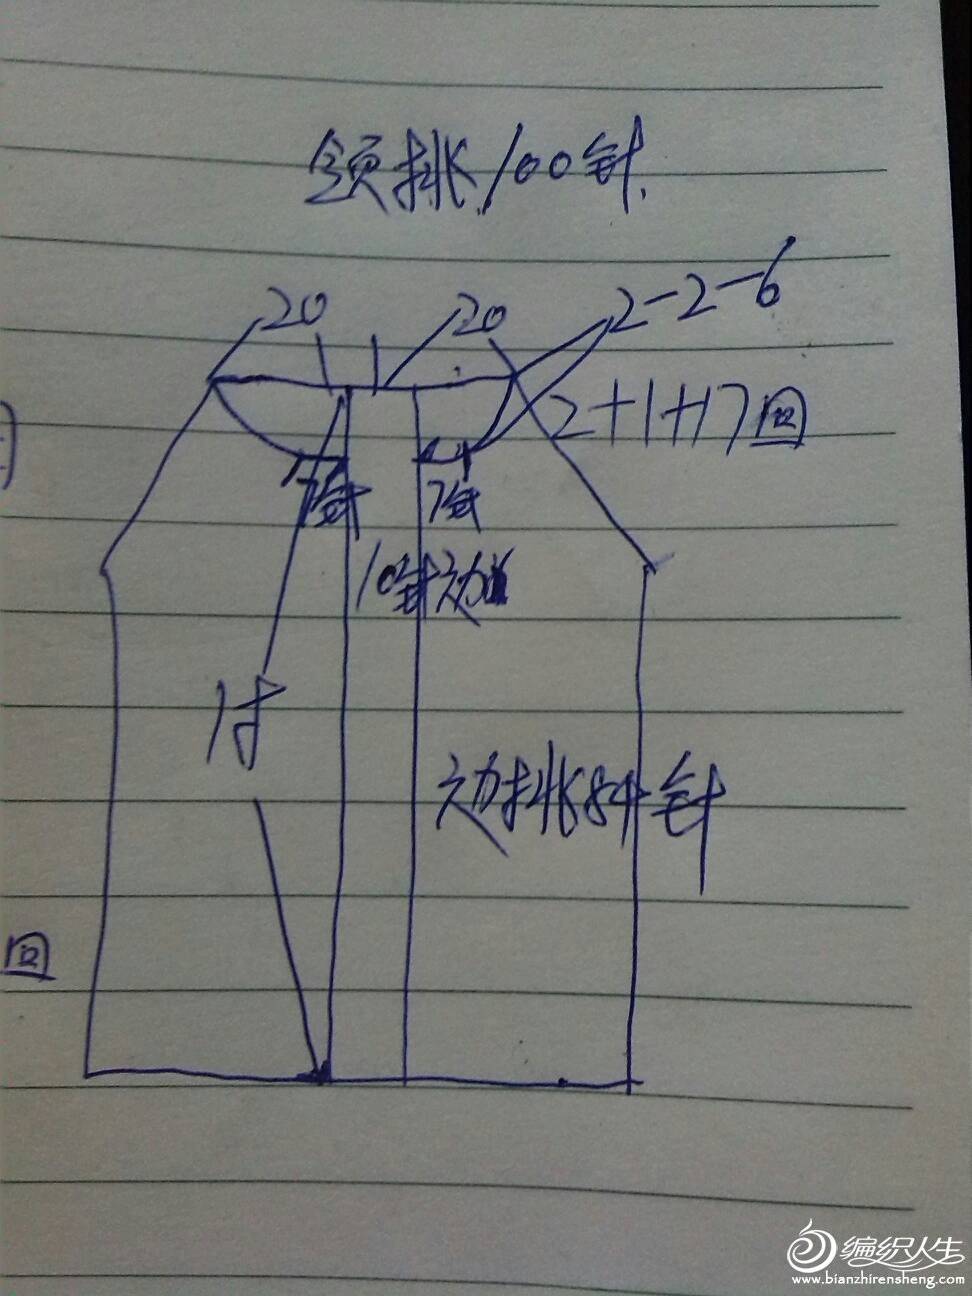 领挑100针
20
20
2-2-6
2+1+17回
7针
7针
10针边
边挑84针
回
编织人生
www.bianzhirensheng.com